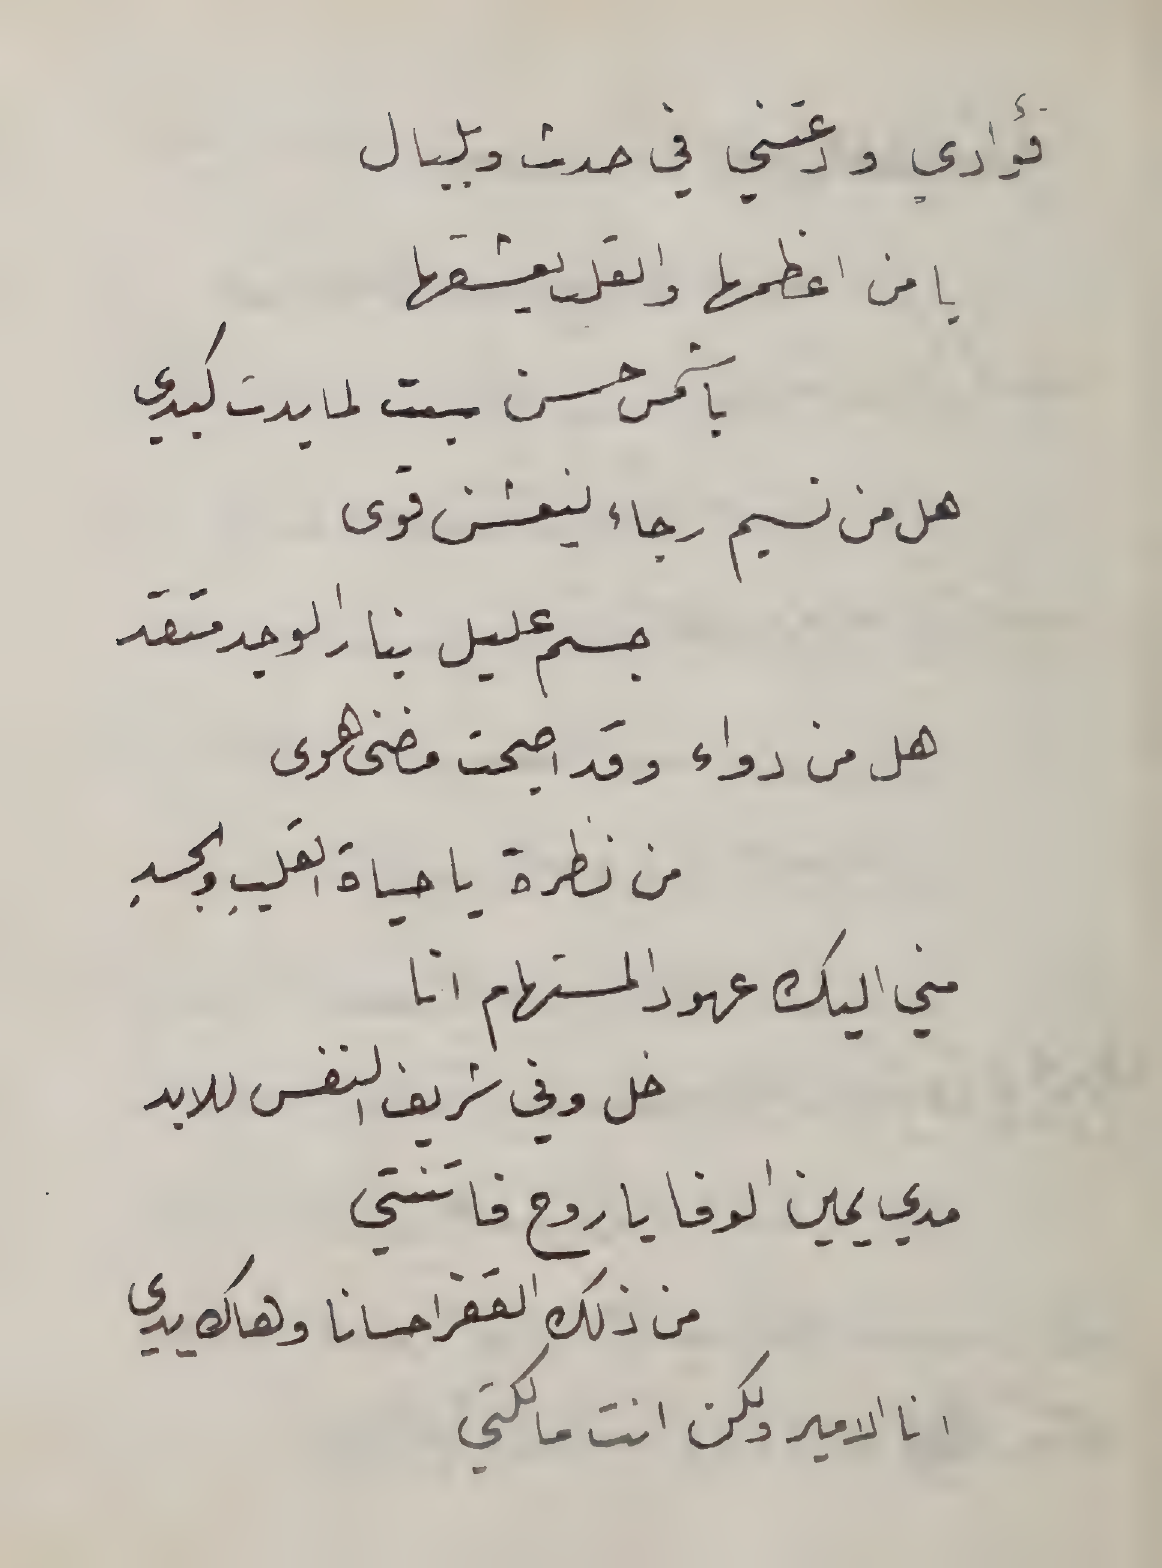 فؤادي ودعتني في حدث وبلبال
يا من اعظمها والقلب يعشقها
يا شمس حسن سبت لما بدت كبدي
هل من نسيم رجاء ينعشن قوى
جسم عليل بنار الوجد متقد
هل من دواء وقد اصبحت مضنى هوى
من نظرة يا حياة القلبِ والجسدِ
مني اليك عهود المستهام انا
خل وفي شريف النفس للابد
مدي يمين الوفا يا روح فاتنتي
من ذلك القفر احسانا وهاك يدي
انا الامير ولكن انت مالكتي